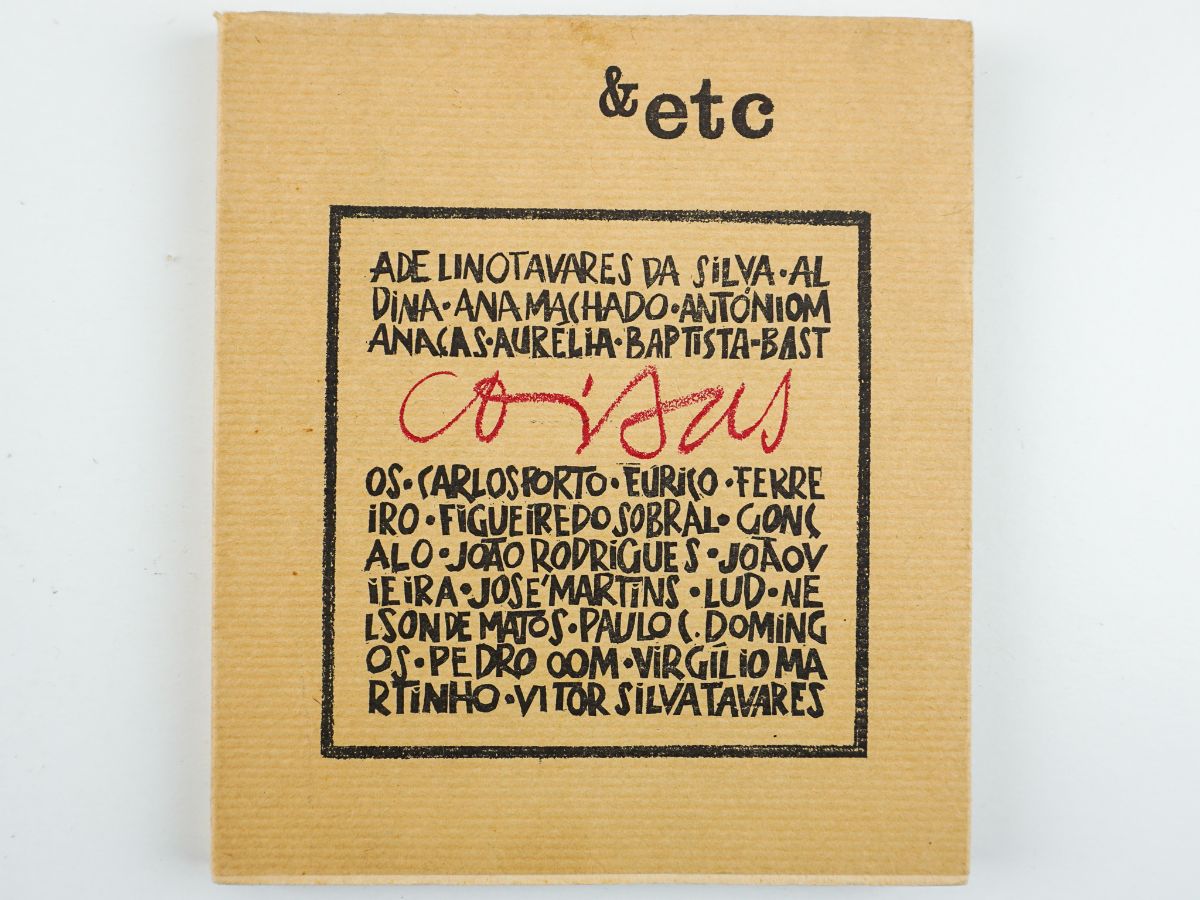 & etc
ADELINOTAVARES DA SiLVA·AL
DiNA·ANA MACHADO·ANTÓNIOM
ANAÇAS·AURÉLIA·BAPTISTA-BAST
coisas
OS·CARLOSPORTO·EÚRIÇO·FERRE
IRO·FiGUEIREDO SOBRAL·GONÇ
ALO·JOÃO RODRIGUES·JOÃOV
IEIRA·JOSÉ MARTiNS·LUD·NE
LSON DE MATOS·PAULO C. DOMiNG
OS·PEDRO OOM·VIRGÍLIO MA
RTINHO·VITOR SiLVA TAVARES